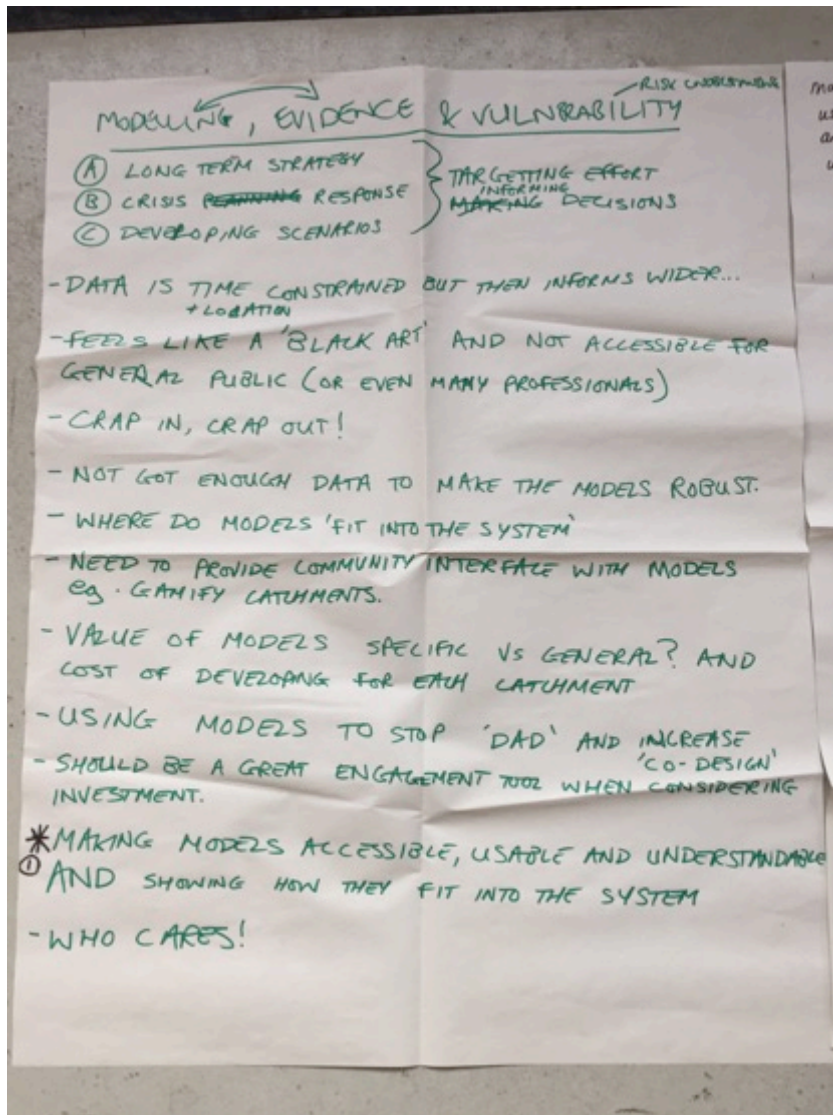 RISK
MODELLING, EVIDENCE & VULNERABILITY
Ⓐ LONG TERM STRATEGY
Ⓑ CRISIS PLANNING RESPONSE
Ⓒ DEVELOPING SCENARIOS
TARGETTING EFFORT
INFORMING
MAKING DECISIONS
- DATA IS TIME CONSTRAINED BUT THEN INFORMS WIDER...
+ LOCATION
- FEELS LIKE A 'BLACK ART' AND NOT ACCESSIBLE FOR
GENERAL PUBLIC (OR EVEN MANY PROFESSIONALS)
- CRAP IN, CRAP OUT!
- NOT GOT ENOUGH DATA TO MAKE THE MODELS ROBUST.
- WHERE DO MODELS 'FIT INTO THE SYSTEM'
- NEED TO PROVIDE COMMUNITY INTERFACE WITH MODELS
eg. GAMIFY CATCHMENTS.
- VALUE OF MODELS SPECIFIC VS GENERAL? AND
COST OF DEVELOPING FOR EACH CATCHMENT
- USING MODELS TO STOP 'DAD' AND INCREASE
'CO-DESIGN'
- SHOULD BE A GREAT ENGAGEMENT TOOL WHEN CONSIDERING
INVESTMENT.
* MAKING MODELS ACCESSIBLE, USABLE AND UNDERSTANDABLE
① AND SHOWING HOW THEY FIT INTO THE SYSTEM
- WHO CARES!